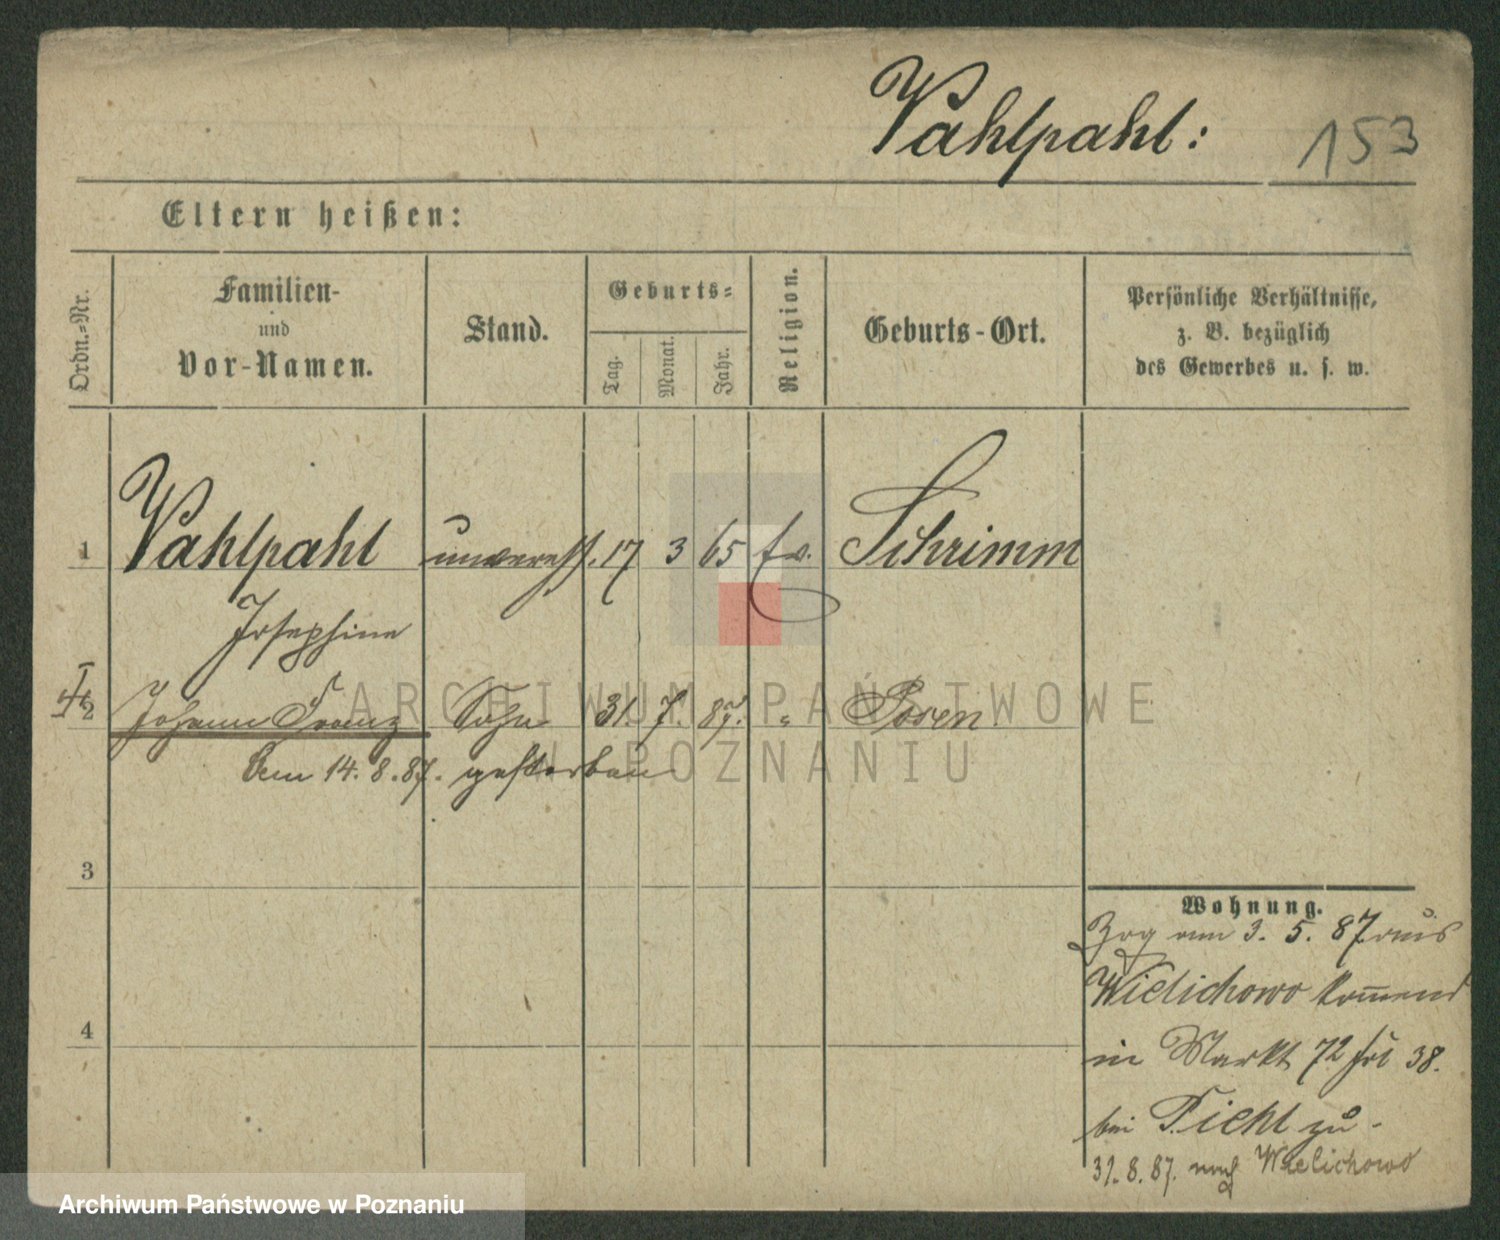 Vahlpahl: 153
Eltern heißen:
Ordn.=Nr.
Familien-
und
Vor-Namen.
Stand.
Geburts=
Tag.
Monat.
Jahr.
Religion.
Geburts-Ort.
Persönliche Verhältnisse,
z. B. bezüglich
des Gewerbes u. s. w.
1 Vahlpahl unvereh. 17 3 65 ev. Schrimm
Josephine
2 Johann Franz Sohn 31. 7. 87. " Posen.
Am 14. 8. 87. gestorben
ARCHIWUM PAŃSTWOWE
W POZNANIU
3
4
Wohnung.
Zog am 3. 5. 87 aus
Wielichowo komend
in Markt 72 38.
bei Piehl zu.
31. 8. 87. nach Wielichowo
Archiwum Państwowe w Poznaniu